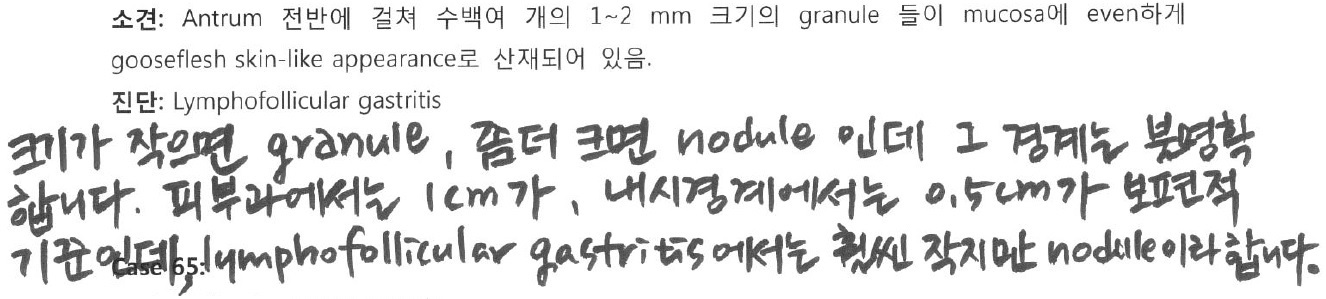 소견: Antrum 전반에 걸쳐 수백여 개의 1~2 mm 크기의 granule 들이 mucosa에 even하게
gooseflesh skin-like appearance로 산재되어 있음.
진단: Lymphofollicular gastritis
크기가 작으면 granule, 좀더 크면 nodule 인데 그 경계는 불명확
합니다. 피부과에서는 1cm가, 내시경계에서는 0.5cm가 보편적
기준인데, lymphofollicular gastritis에서는 훨씬 작지만 nodule이라 합니다.
Case 65: